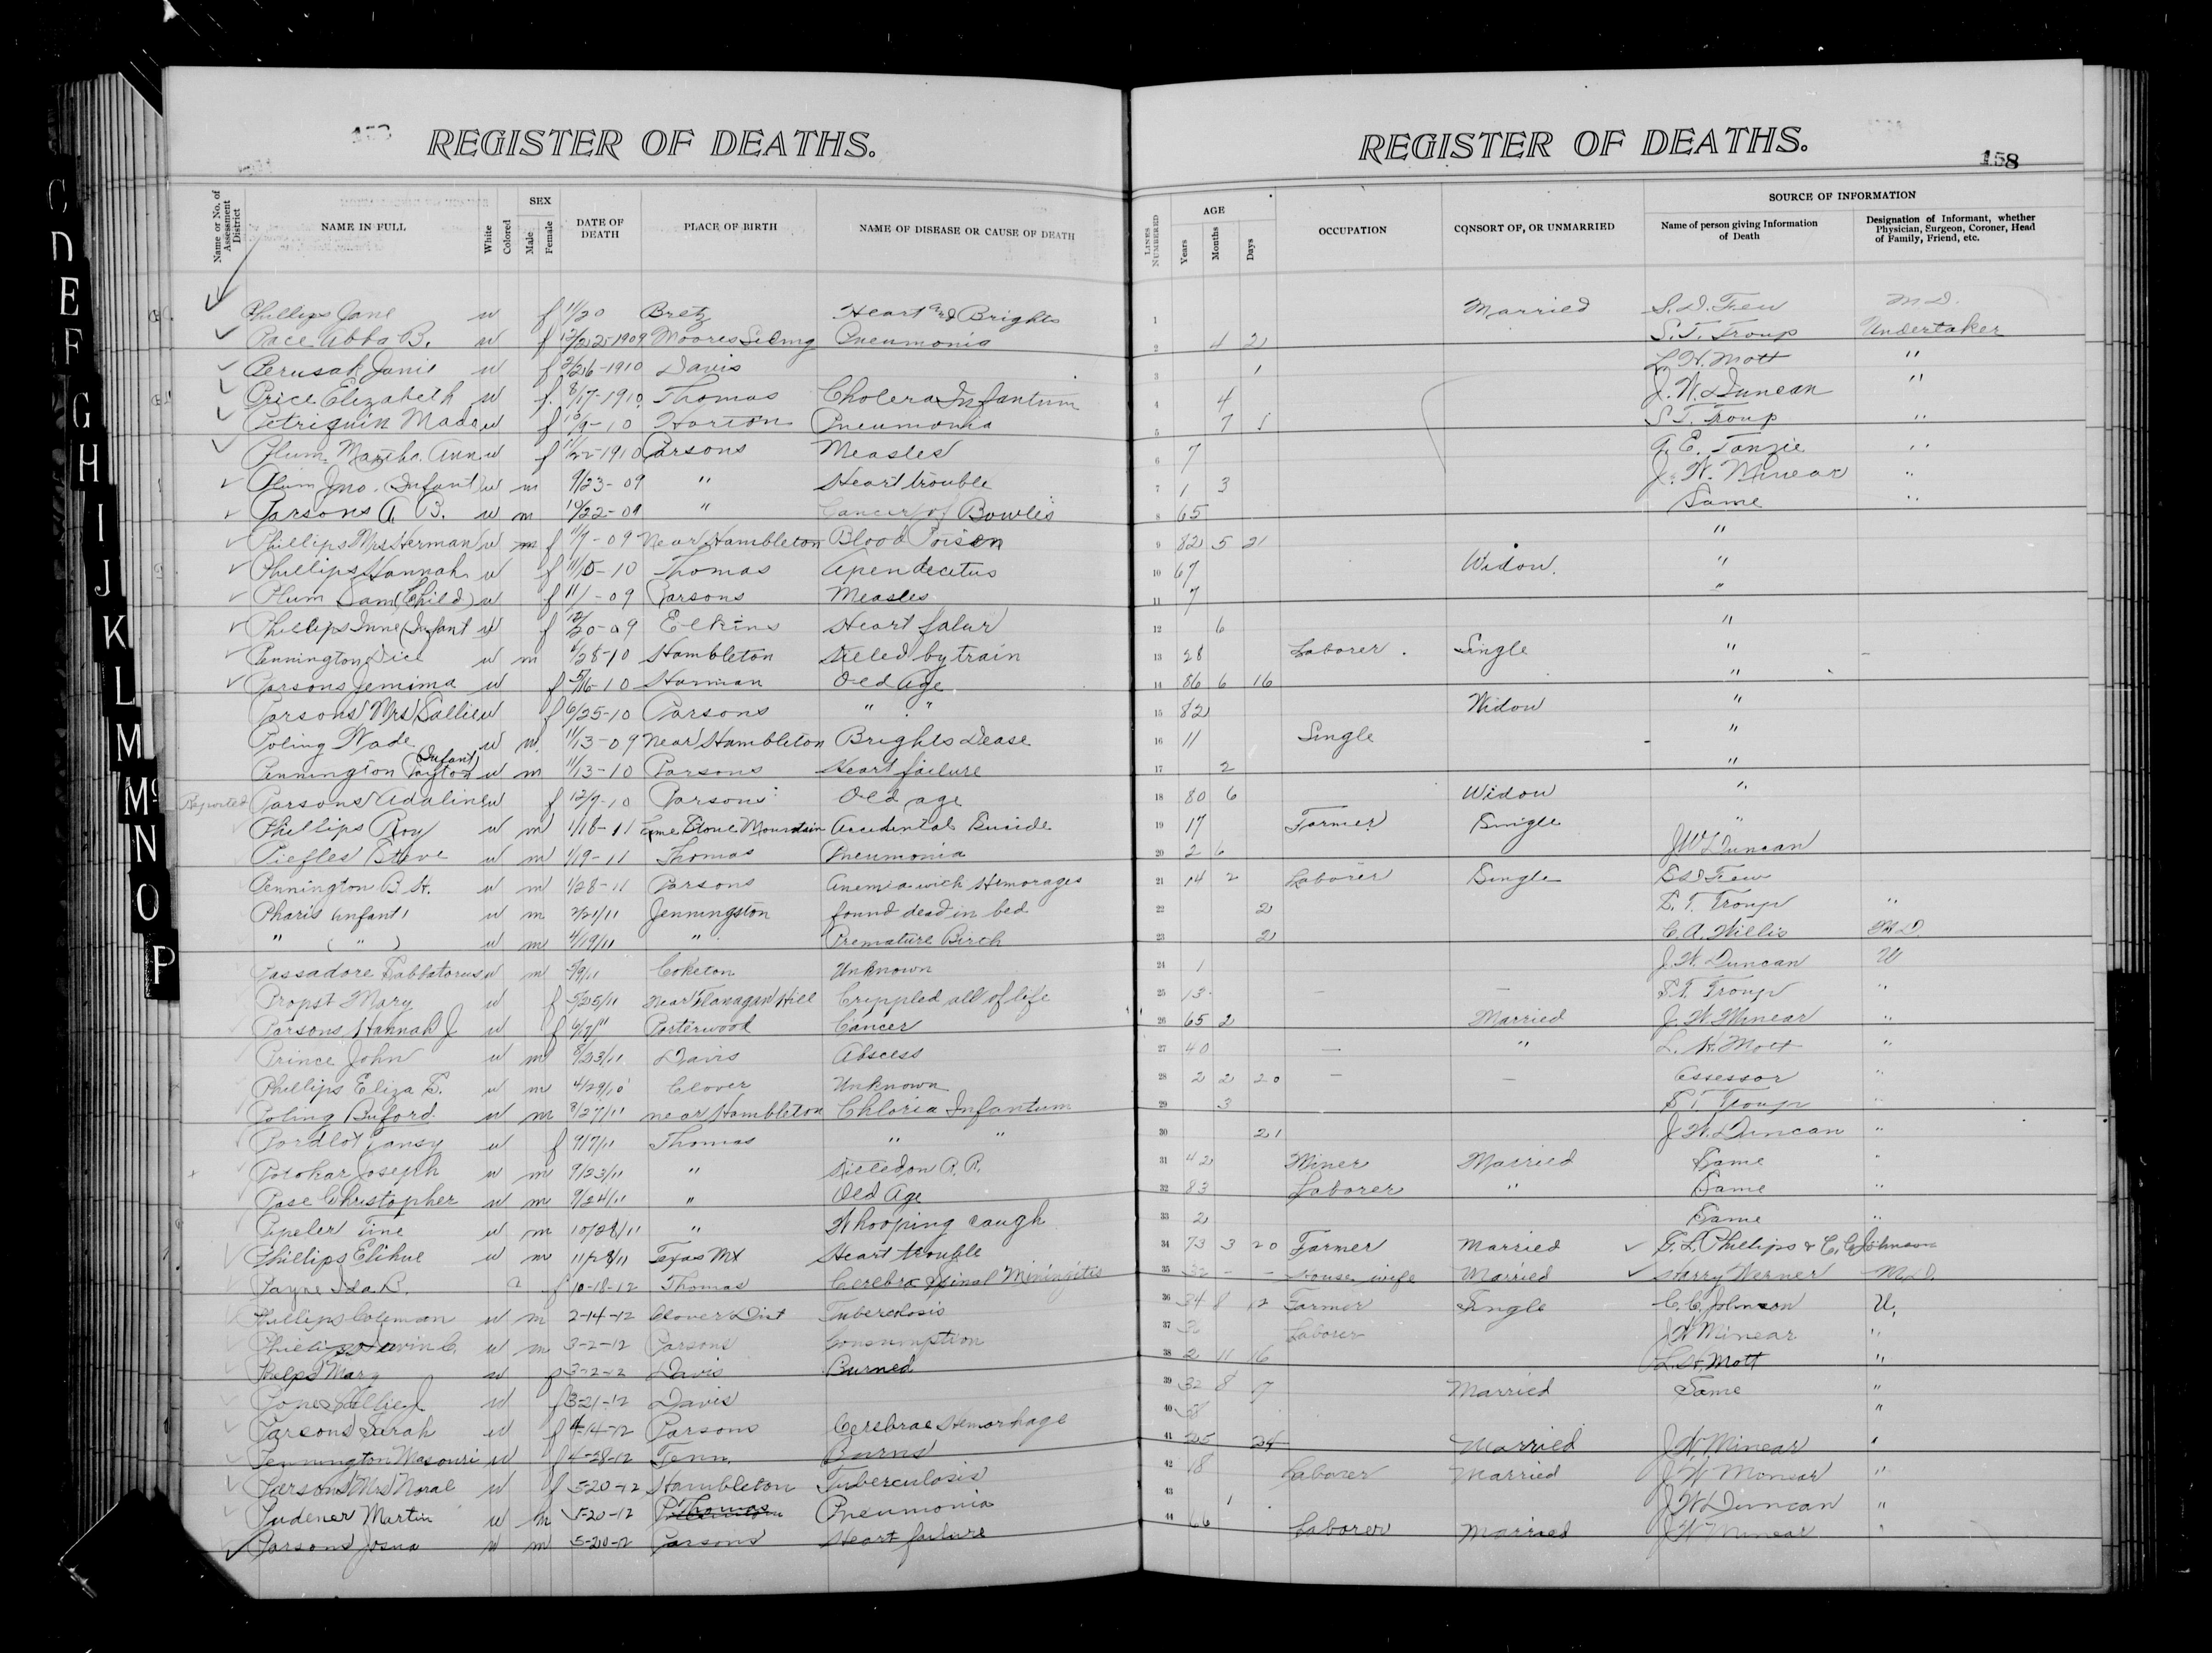 REGISTER OF DEATHS.
Name or No. of Assessment District
NAME IN FULL
White
Colored
SEX
Male
Female
DATE OF DEATH
PLACE OF BIRTH
NAME OF DISEASE OR CAUSE OF DEATH
Phillips Jane w f 11/20 Bretz Heart and Brights
Pace Abba B. w f 12/22-1909 Moores Pneumonia
Perusak w f 2/26-1910 Davis
Price Elizabeth w f. 8/17-1910 Thomas Cholera Infantum
Petriquin w f 10/9-10 Horton Pneumonia
Plum Martha Ann w f 11/22-1910 Parsons Measles
Plum Jno. Infant w m 9/23-09 " Heart trouble
Parsons A. B. w m 10/22-09 " Cancer of Bowles
Phillips Mrs Herman w f 11/9-09 Near Hambleton Blood Poison
Phillips Hannah w f 11/5-10 Thomas Apendecitus
Plum Sam (Child) w f 11/1-09 Parsons Measles
Phillips (Infant w f 12/20-09 Elkins Heart falur
Pennington Dice w m 1/28-10 Hambleton Killed by train
Parsons Jemima w f 5/16-10 Harman Old Age
Parsons Mrs Sallie w f 6/25-10 Parsons " "
Poling Wade w m. 11/13-09 Near Hambleton Brights Dease
Pennington (Infant) w m 11/13-10 Parsons Heart failure
Reported Parsons Adaline w f 12/9-10 Parsons Old age
Phillips Roy w m 1/18-11 Lime Stone Mountain Accidental Suicide
Steve w m 1/19-11 Thomas Pneumonia
Pennington B. H. w m 1/28-11 Parsons Anemia with Hemorages
Pharis infant w m 2/21/11 Jenningston found dead in bed
" ( " ) w m 4/19/11 " Premature Birth
w m 5/9/11 Coketon Unknown
Propst Mary w f 5/25/11 Near Flanagan Hill Crippled all of life
Parsons Hannah J w f 6/7/11 Porterwood Cancer
Prince John w m 8/23/11 Davis Abscess
Phillips Eliza E. w m 4/29/10 Clover Unknown
Poling Buford w m 8/27/11 near Hambleton Chloria Infantum
w f 9/7/11 Thomas " "
Potokar Joseph w m 9/23/11 " Killed on R. R.
Pase Christopher w m 9/24/11 " Old Age
Pipeler Tine w m 10/28/11 " Whooping caugh
Phillips Elihue w m 11/28/11 Texas Mt Heart trouble
Payne Ida B. c f 10-18-12 Thomas Cerebro Spinal Miningitis
Phillips Coleman w m 2-14-12 Clover Dist Tuberculosis
Phillips w m 3-2-12 Parsons Consumption
Phelps Mary w f 3-2-12 Davis Burned
w f 3-21-12 Davis
Parsons Sarah w f 4-14-12 Parsons Cerebrae Hemorhage
Pennington Masouri w f 4-28-12 Tenn. Burns
Parsons Mrs Noral w f 5-20-12 Hambleton Tuberculosis
Pudener Martin w m 5-20-12 Thomas Pneumonia
Parsons Josua w m 5-20-12 Parsons Heart failure
REGISTER OF DEATHS.
158
LINES NUMBERED
AGE
Years
Months
Days
OCCUPATION
CONSORT OF, OR UNMARRIED
SOURCE OF INFORMATION
Name of person giving Information of Death
Designation of Informant, whether Physician, Surgeon, Coroner, Head of Family, Friend, etc.
1 Married S. D. Few M D.
2 4 21 S. T. Troup Undertaker
3 1 L. H. Mott "
4 4 J. W. Duncan "
5 7 1 S T. Troup "
6 7 "
7 1 3 J. W. Minear "
8 65 Same "
9 82 5 21 "
10 67 Widow. "
11 7 "
12 6 "
13 28 Laborer. Single "
14 86 6 16 "
15 82 Widow "
16 11 Single "
17 2 "
18 80 6 Widow "
19 17 Farmer Single "
20 2 6 J W Duncan
21 14 2 Laborer Single S D Few
22 2 S. T. Troup "
23 2 C. A. Willis M D.
24 1 J. W. Duncan U
25 13 — — S. T. Troup "
26 65 2 Married J. W. Minear "
27 40 — " L. H. Mott "
28 2 2 20 — — Assessor "
29 3 S T. Troup "
30 21 J. W. Duncan "
31 42 Miner Married Same "
32 83 Laborer " Same "
33 2 Same "
34 73 3 20 Farmer Married G. L. Phillips & C. C. Johnson
35 32 - - House wife Married Harry Werner M. D.
36 34 8 12 Farmer Single C. C. Johnson U,
37 Laborer J W Minear "
38 2 11 16 L. H. Mott "
39 32 8 7 Married Same "
40 "
41 25 24 Married J. W. Minear "
42 18 Laborer Married J W Minear "
43 1 J W Duncan "
44 66 Laborer Married J W Minear "
C
D
E
F
G
H
I
J
K
L
M
Mc
N
O
P